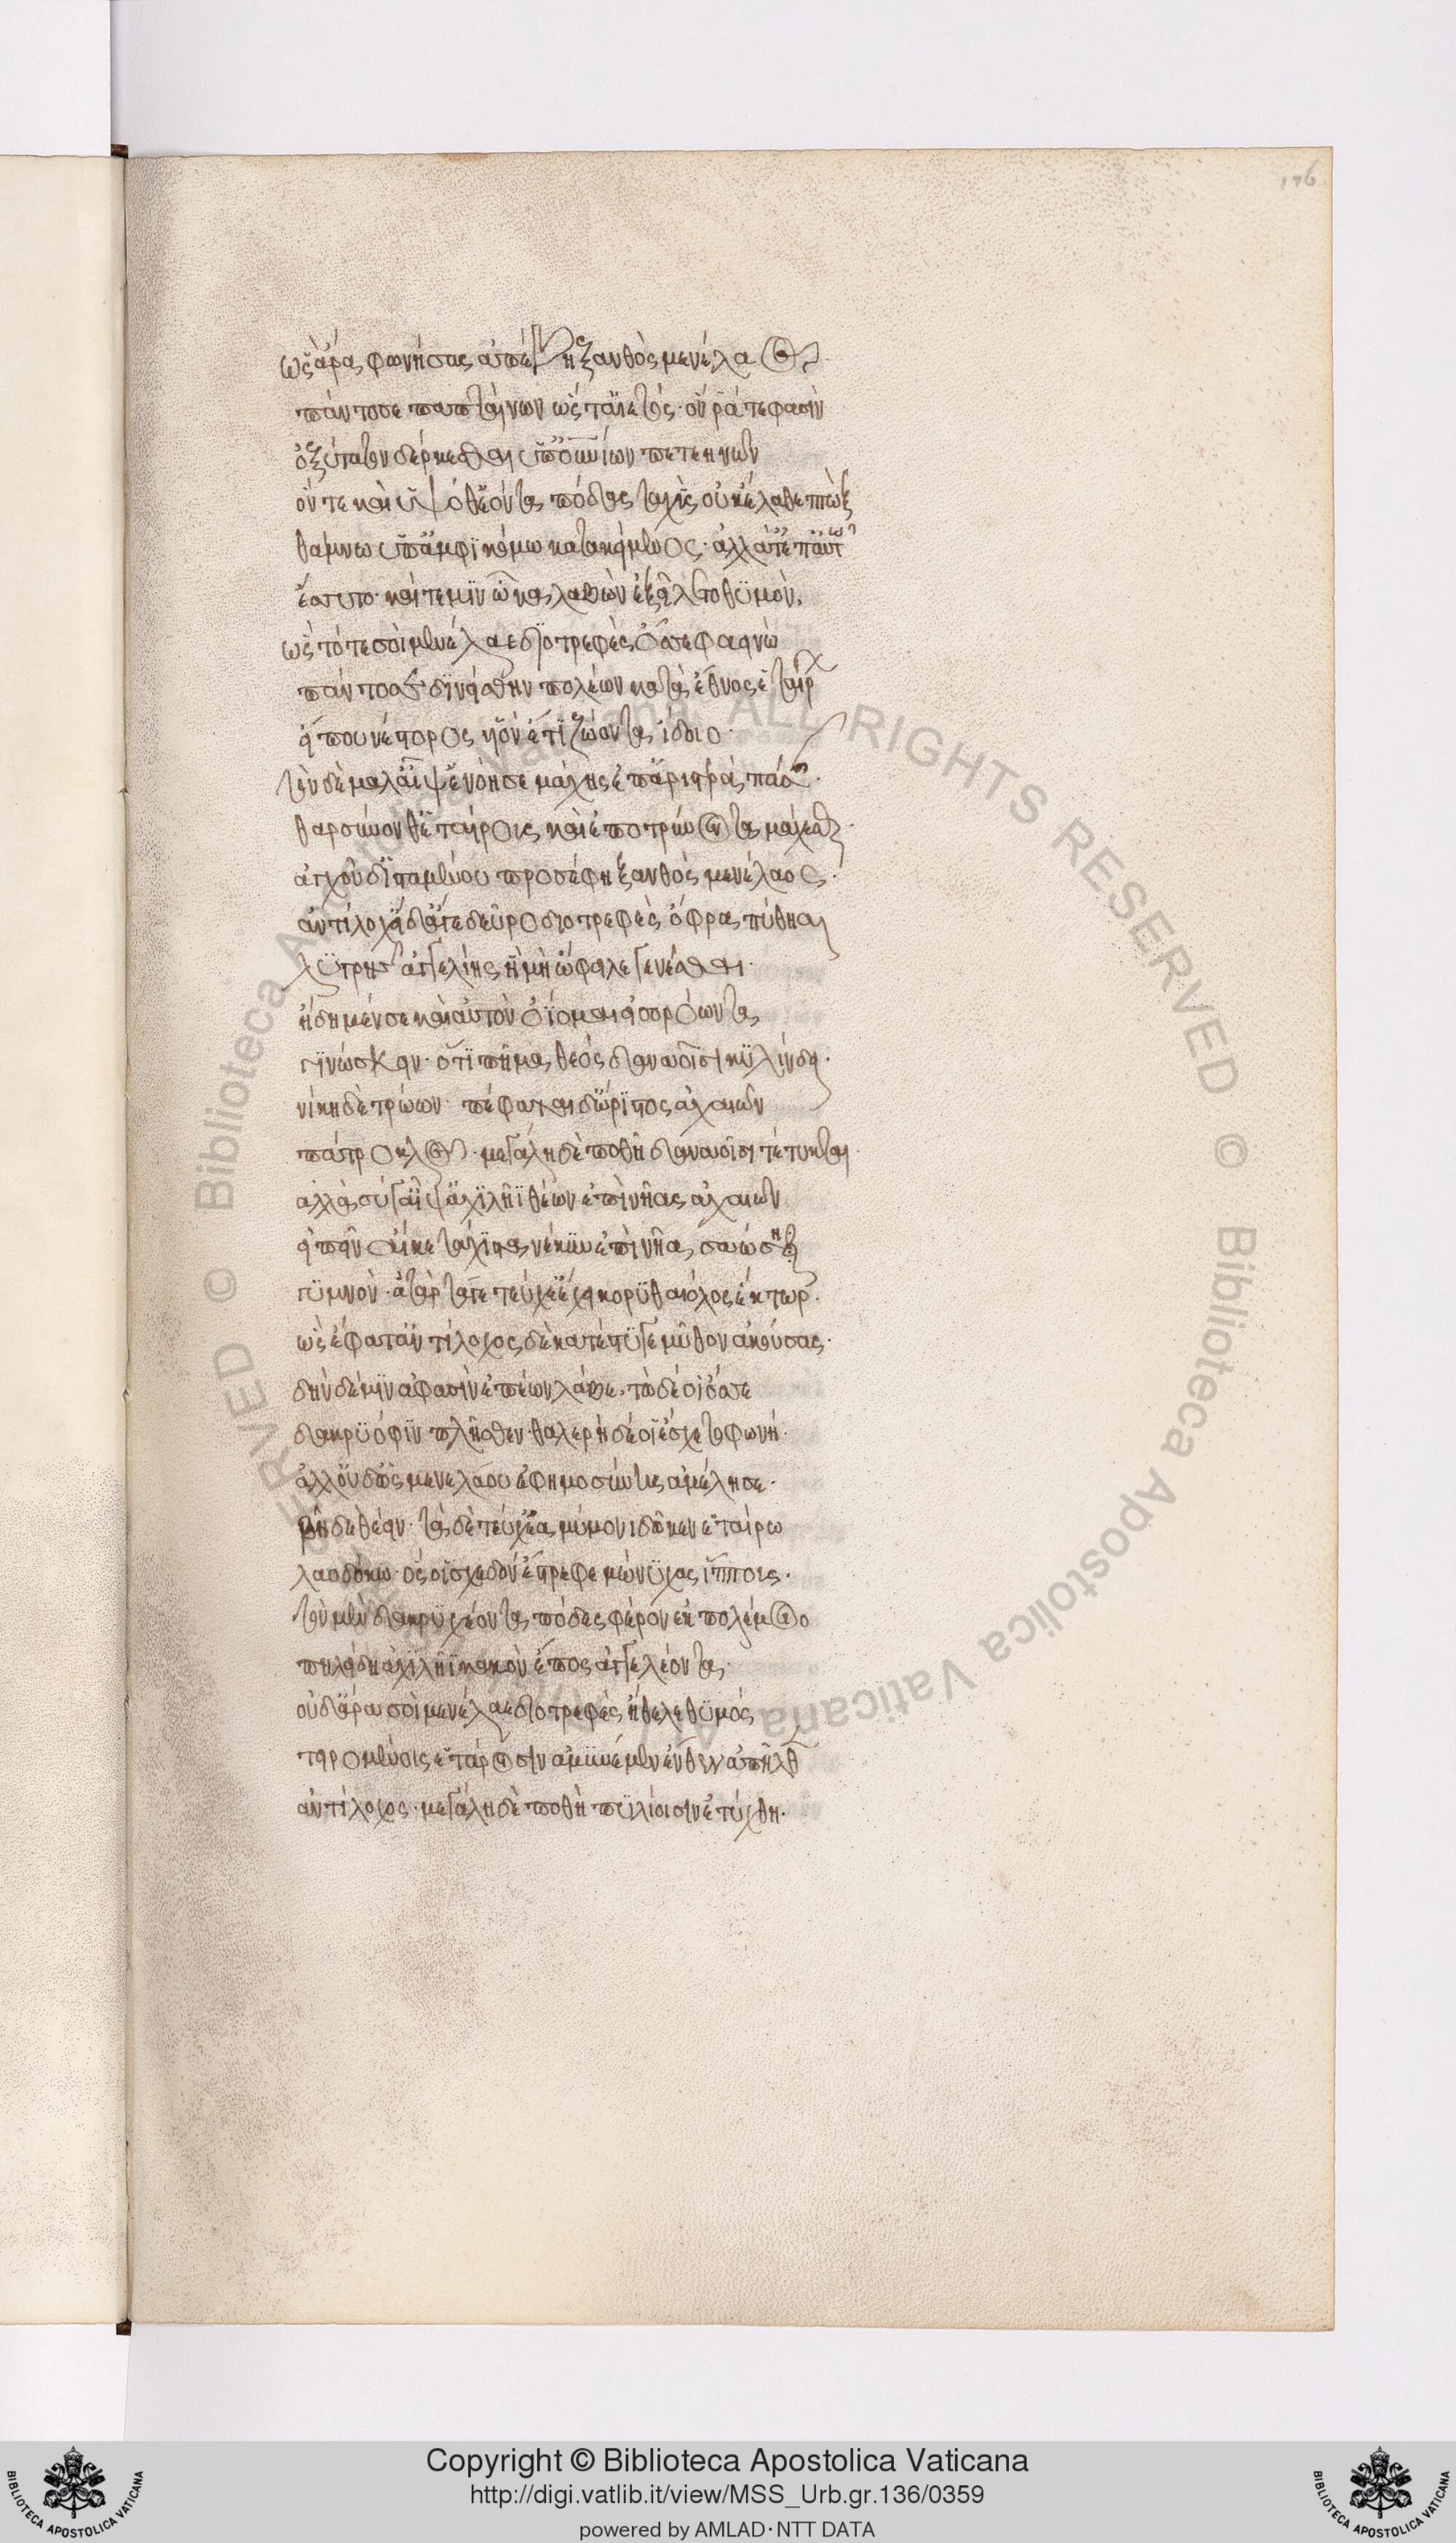 176
ὣς ἄρα φωνήσας ἀπέβη ξανθὸς μενέλαος·
πάντοσε παπταίνων ὥς τ' αἰετός· ὅν ῥά τέ φασιν
ὀξύτατον δέρκεσθαι ὑπουρανίων πετεηνῶν
ὅν τε καὶ ὑψόθ' ἐόντα πόδας ταχὺς οὐκ ἔλαθε πτὼξ
θάμνω ὑπ' ἀμφικόμω κατακείμενος· ἀλλά τ' ἐπ' αὐτῶ
ἔσσυτο· καί τέ μιν ὦκα λαβὼν ἐξείλετο θυμόν.
ὣς τότε σοὶ μενέλαε διοτρεφὲς ὄσσε φαεινὼ
πάντοσε δινείσθην πολέων κατὰ ἔθνος ἑταίρων
εἴ που νέστορος υἱὸν ἔτι ζώοντα ἴδοιο·
τὸν δὲ μάλ' αἶψ' ἐνόησε μάχης ἐπ' ἀριστερὰ πάσης·
θαρσύνονθ' ἑτάρους καὶ ἐποτρύνοντα μάχεσθαι·
ἀγχοῦ δ' ἱστάμενος προσέφη ξανθὸς μενέλαος·
ἀντίλοχ' εἰ δ' ἄγε δεῦρο διοτρεφὲς ὄφρα πύθηαι
λυγρῆς ἀγγελίης ἣ μὴ ὤφελλε γενέσθαι·
ἤδη μέν σε καὶ αὐτὸν ὀΐομαι εἰσορόωντα
γινώσκειν· ὅτι πῆμα θεὸς δαναοῖσι κυλίνδει·
νίκη δὲ τρώων· πέφαται δ' ὤριστος ἀχαιῶν
πάτροκλος· μεγάλη δὲ ποθὴ δαναοῖσι τέτυκται·
ἀλλὰ σύ γ' αἶψ' ἀχιλῆϊ θέων ἐπὶ νῆας ἀχαιῶν
εἰπεῖν αἴ κε τάχιστα νέκυν ἐπὶ νῆα σαώσῃ
γυμνόν· ἀτὰρ τά γε τεύχε' ἔχει κορυθαιόλος ἕκτωρ·
ὣς ἔφατ' ἀντίλοχος δὲ κατέστυγε μῦθον ἀκούσας·
δὴν δέ μιν ἀφασίη ἐπέων λάβε· τὼ δέ οἱ ὄσσε
δακρυόφιν πλῆσθεν· θαλερὴ δέ οἱ ἔσχετο φωνή·
ἀλλ' οὐδ' ὣς μενελάου ἐφημοσύνης ἀμέλησε·
βῆ δὲ θέειν· τὰ δὲ τεύχε' ἀμύμονι δῶκεν ἑταίρω
λαοδόκω· ὅς οἱ σχεδὸν ἔστρεφε μώνυχας ἵππους·
τὸν μὲν δακρυχέοντα πόδες φέρον ἐκ πολέμοιο
πηλείδη ἀχιλῆϊ κακὸν ἔπος ἀγγελέοντα·
οὐδ' ἄρα σοὶ μενέλαε διοτρεφὲς ἤθελε θυμός
τειρομένοις ἑτάροισιν ἀμυνέμεν ἔνθεν ἀπῆλθεν
ἀντίλοχος· μεγάλη δὲ ποθὴ πυλίοισιν ἐτύχθη·
© Biblioteca Apostolica Vaticana ALL RIGHTS RESERVED
Copyright © Biblioteca Apostolica Vaticana
http://digi.vatlib.it/view/MSS_Urb.gr.136/0359
powered by AMLAD·NTT DATA
BIBLIOTECA APOSTOLICA VATICANA
BIBLIOTECA APOSTOLICA VATICANA